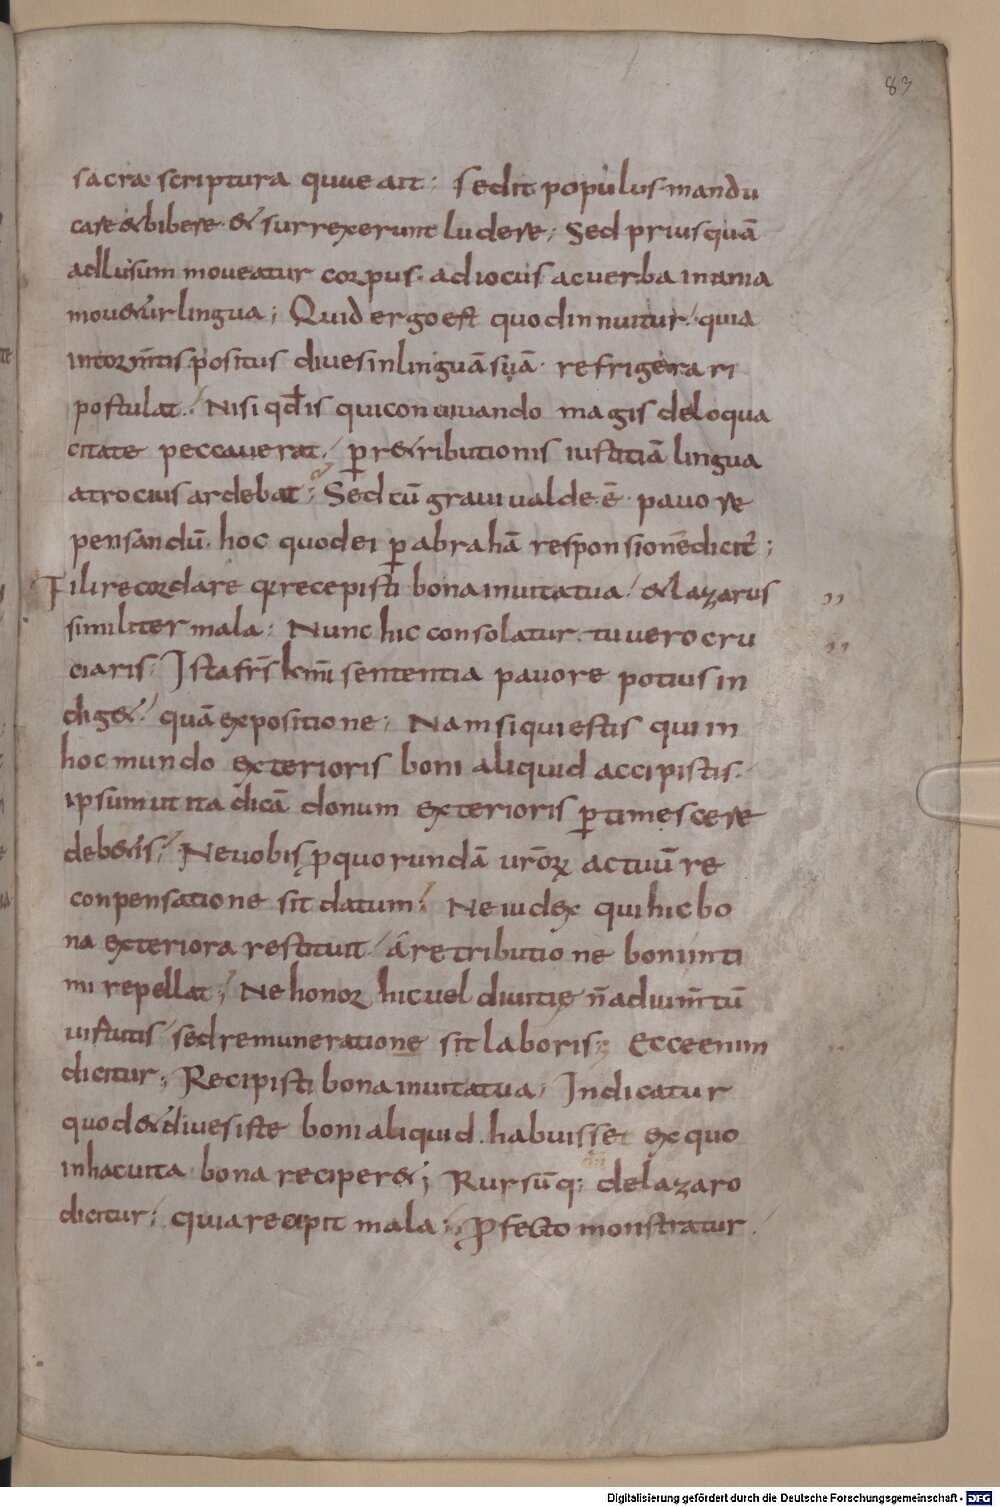 83
sacrae scriptura quae ait; Sedit populus mandu
care & bibere & surrexerunt ludere; Sed priusquā
ad lusum moveatur corpus ad iocus ac verba inania
mov&ur lingua; Quid ergo est quod innuitur quia
in torm̄tis positus dives in linguā suā refrigerari
postulat. Nisi qđ is qui convivando magis de loqua
citate peccaverat, p r&ributionis iustitiā lingua
atrocius ardebat; Sed cū gravi valde ē pavore
pensandū hoc quod ei p abrahā responsione dicit̄;
Fili recordare q̄ recepisti bona in vita tua & lazarus
similiter mala; Nunc hic consolatur tu vero cru
ciaris. Ista fr̄s km̄i sententia pavore potius in
dig& quā expositione; Nam si qui estis qui in
hoc mundo exterioris boni aliquid accipistis
ipsum ut ita dicā donum exterioris ptimescere
deb&is; Ne vobis p quorundā vr̄orꝝ actuū re
conpensatione sit datum; Ne iudex qui hic bo
na exteriora restituit a retributione boni inti
mi repellat; Ne honor hic vel divitię n̄ adium̄tū
virtutis sed remuneratione sit laboris; Ecce enim
dicitur; Recipisti bona in vita tua; Indicatur
quod & dives iste boni aliquid habuisset ex quo
in hac vita bona reciper&; Rursūq; de lazaro
dicitur; quia recipit mala; pfecto monstratur
Digitalisierung gefördert durch die Deutsche Forschungsgemeinschaft - DFG